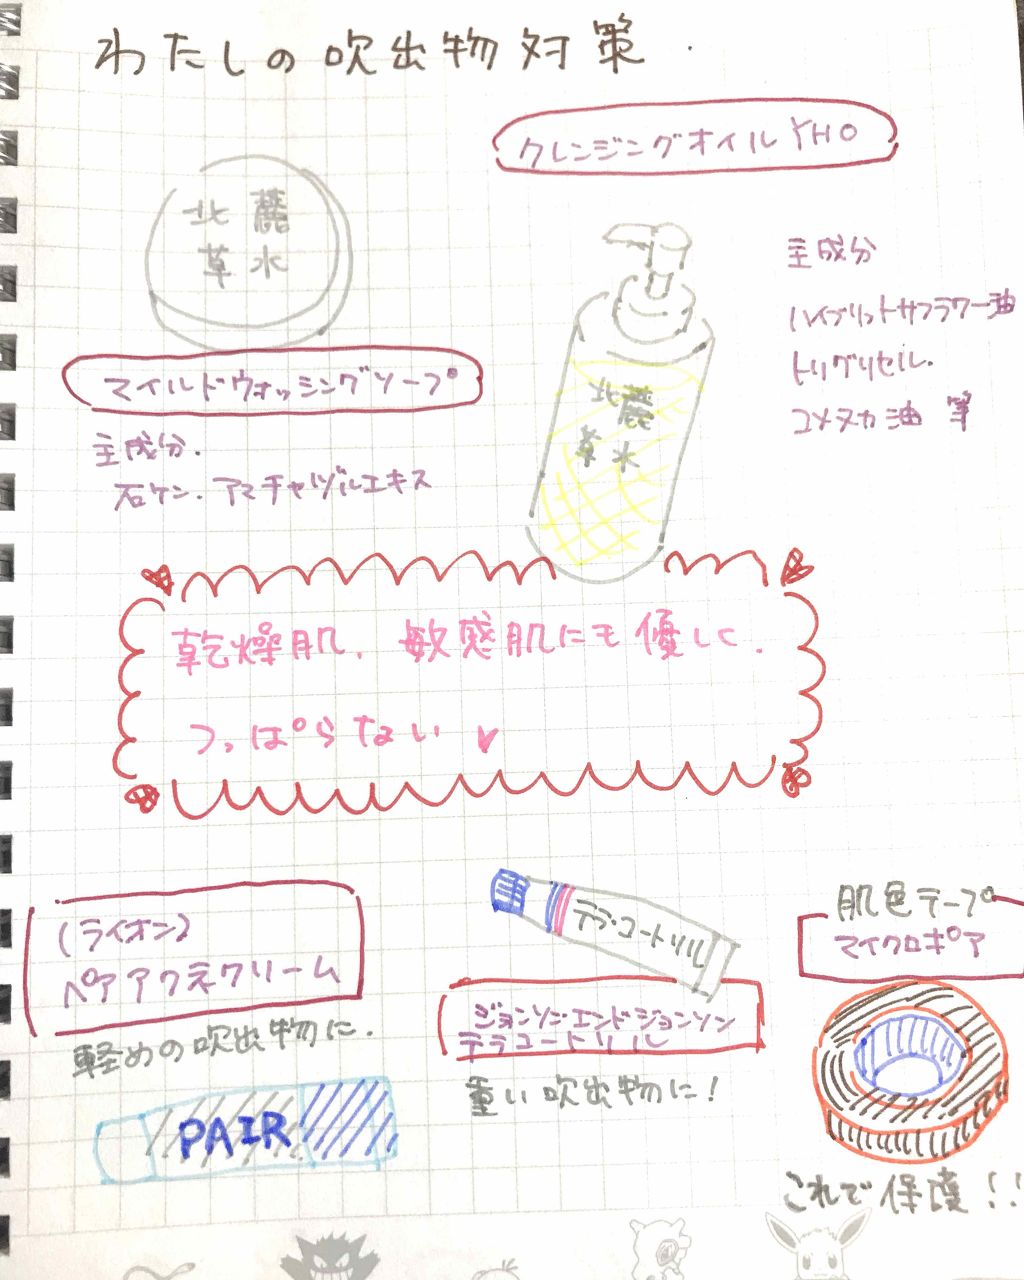 わたしの吹出物対策
クレンジングオイルYHO
北麓
草水
マイルドウォッシングソープ
主成分.
石ケン.アマチャヅルエキス
北麓
草水
主成分
ハイブリットサフラワー油
トリグリセル.
コメヌカ油 等
乾燥肌、敏感肌にも優しく.
つっぱらない
(ライオン)
ペアアクネクリーム
軽めの吹出物に.
PAIR
テラ・コートリル
ジョンソン・エンドジョンソン
テラコートリル
重い吹出物に!
肌色テープ
マイクロポア
これで保護!!